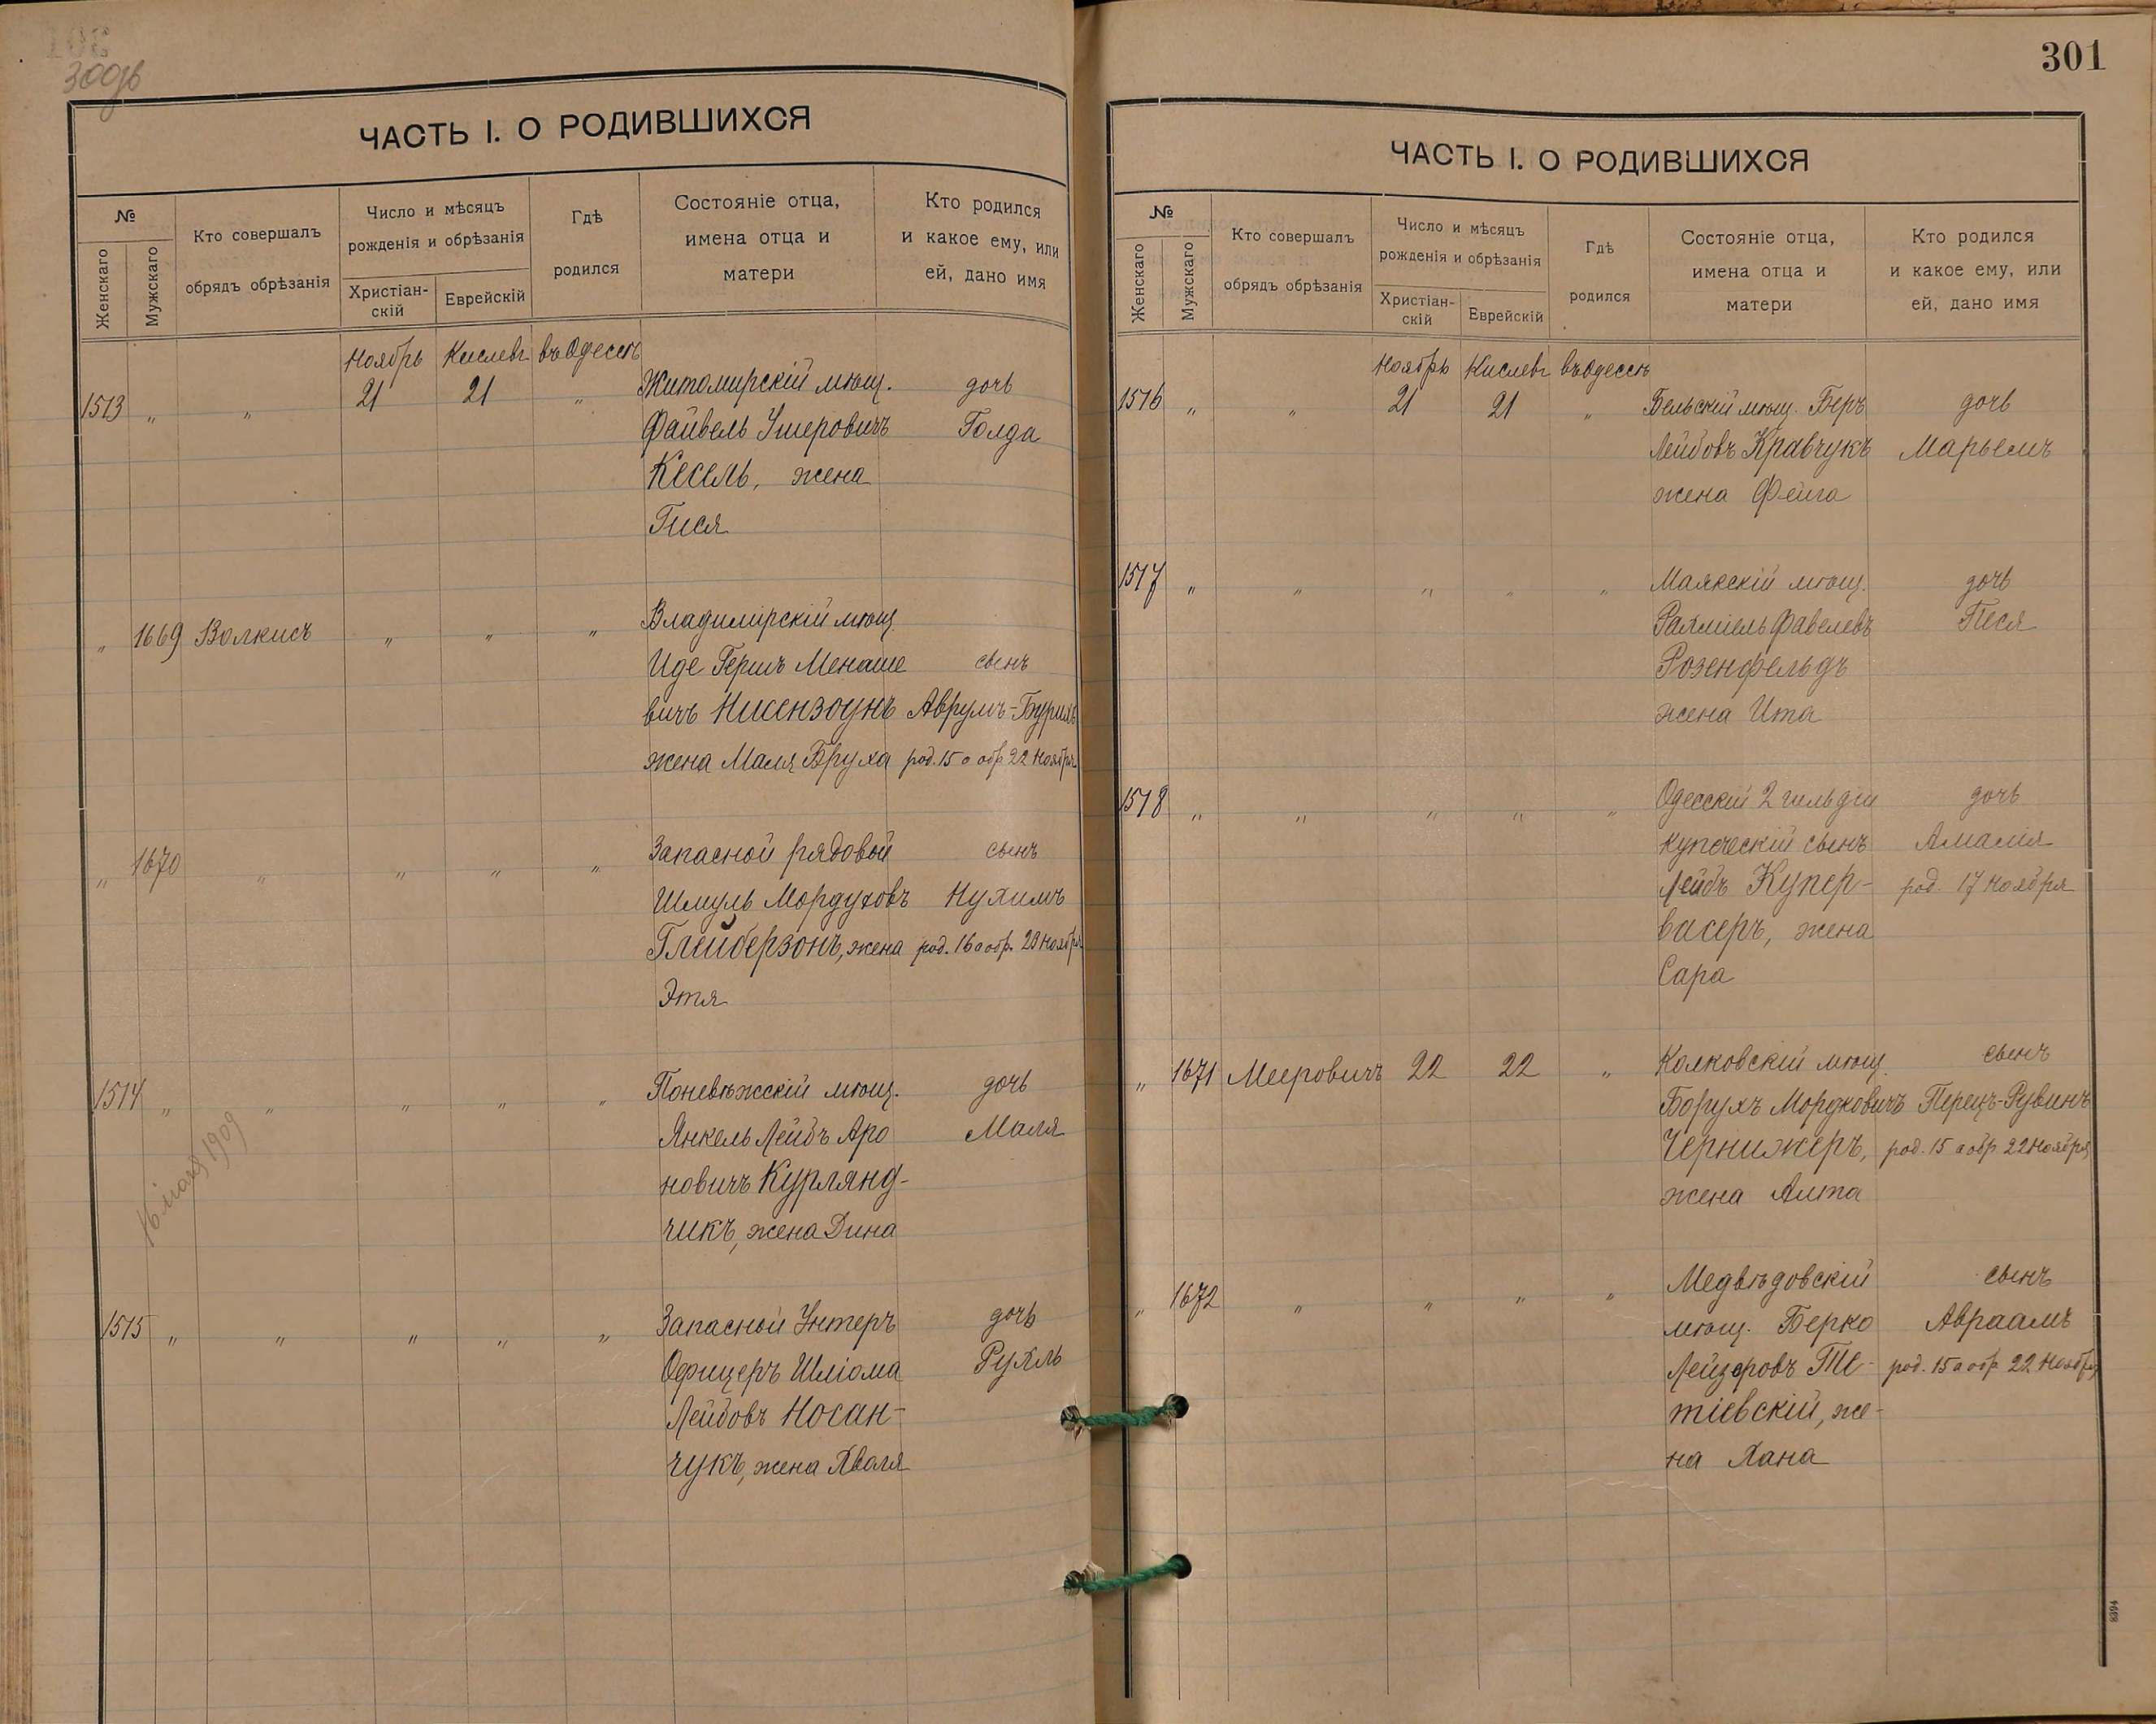 300об
ЧАСТЬ I. О РОДИВШИХСЯ
№
Женскаго
Мужскаго
Кто совершалъ
обрядъ обрѣзанія
Число и мѣсяцъ
рожденія и обрѣзанія
Христіан-
скій
Еврейскій
Гдѣ
родился
Состояніе отца,
имена отца и
матери
Кто родился
и какое ему, или
ей, дано имя
Ноябрь Кислевъ въ Одессѣ
1513 „ „ 21 21 „ Житомирскій мѣщ. дочь
Файвель Ушеровичъ Голда
Кесель, жена
Гися
„ 1669 Волкисъ „ „ „ Владимірскій мѣщ.
Иде Гершъ Менаше сынъ
вичъ Нисензоунъ Аврумъ-Бурихъ
жена Маля Бруха род. 15 о обр 22 Ноября
„ 1670 „ „ „ „ Запасной рядовой сынъ
Шмуль Мордуховъ Нухимъ
Глейберзонъ, жена род. 16 о обр. 23 Ноября
Этя
1514 „ „ „ „ „ Поневѣжскій мѣщ. дочь
Янкель Лейбъ Аро Маля
новичъ Курлянд-
чикъ, жена Дина
1909
1515 „ „ „ „ „ Запасной Унтеръ дочь
Офицеръ Шліома Рухль
Лейбовъ Носан-
чукъ, жена Хволя
301
ЧАСТЬ I. О РОДИВШИХСЯ
№
Женскаго
Мужскаго
Кто совершалъ
обрядъ обрѣзанія
Число и мѣсяцъ
рожденія и обрѣзанія
Христіан-
скій
Еврейскій
Гдѣ
родился
Состояніе отца,
имена отца и
матери
Кто родился
и какое ему, или
ей, дано имя
Ноябрь Кислевъ въ Одессѣ
1516 „ „ 21 21 „ Бельскій мѣщ. Беръ дочь
Лейбовъ Кравчукъ Марьемъ
жена Фейга
1517 „ „ „ „ „ Маякскій мѣщ. дочь
Рахміель Фавелевъ Песя
Розенфельдъ
жена Ита
1518 „ „ „ „ „ Одесскій 2 гильдіи дочь
купеческій сынъ Амалія
Лейбъ Купер- род. 17 Ноября
васеръ, жена
Сара
„ 1671 Мееровичъ 22 22 „ Колковскій мѣщ. сынъ
Борухъ Мордковичъ Перецъ-Рувинъ
Чернижеръ, род. 15 а обр 22 Ноября
жена Алта
„ 1672 „ „ „ „ Медвѣдовскій сынъ
мѣщ. Берко Авраамъ
Лейзеровъ Те- род. 15 а обр. 22 Ноября
тіевскій, же-
на Хана
8394